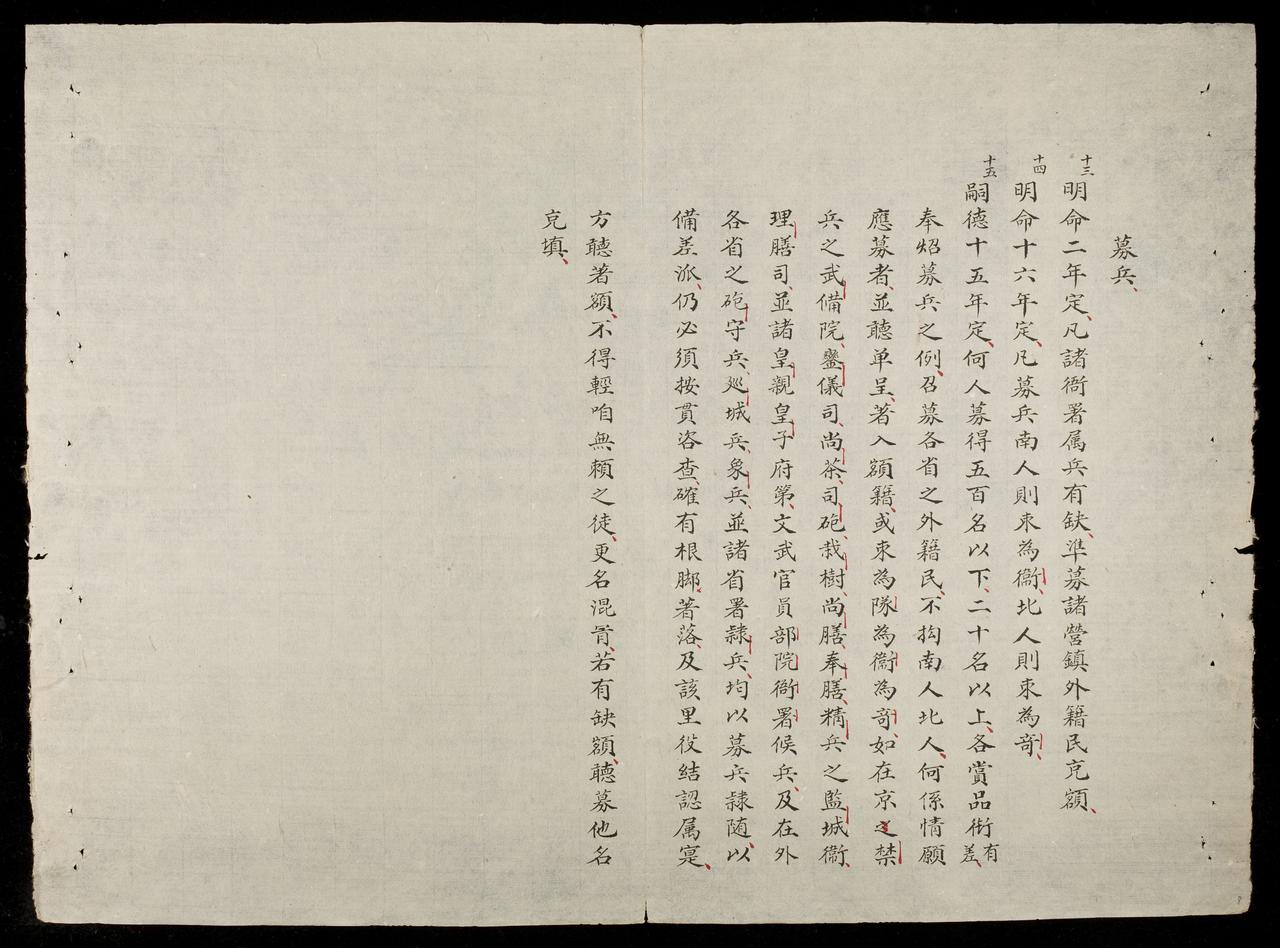 募兵、
十三 明命二年定、凡諸衙署属兵有缺、準募諸營鎮外籍民充額、
十四 明命十六年定、凡募兵南人則束為衞、北人則束為竒、
十五 嗣德十五年定、何人募得五百名以下、二十名以上、各賞品銜有差、
奉炤募兵之例、召募各省之外籍民、不抅南人北人、何係情願
應募者、並聽单呈、著入額籍、或束為隊為衞為竒、如在京之禁
兵之武備院、鑾儀司、尚茶、司砲、栽樹、尚膳、奉膳、精兵之監城衞、
理膳司、並諸皇親皇子府第、文武官員部院衙署候兵、及在外
各省之砲守兵、巡城兵、象兵、並諸省署隷兵、均以募兵隷随、以
備差派、仍必須按貫咨查、確有根脚、著落、及該里役結認属寔、
方聽著額、不得輕咱無賴之徒、更名混冐、若有缺額、聽募他名
充填、